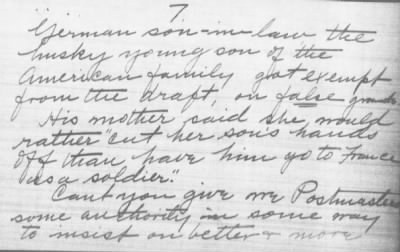 7
"German son-in-law the
husky young son of the
American family got exempt
from the draft, on false grounds
His mother said she, would
rather "cut her son's hands
off than have him go to France
as a soldier".
Cant you give we Postmasters
some authority in some way
to insist on better & more